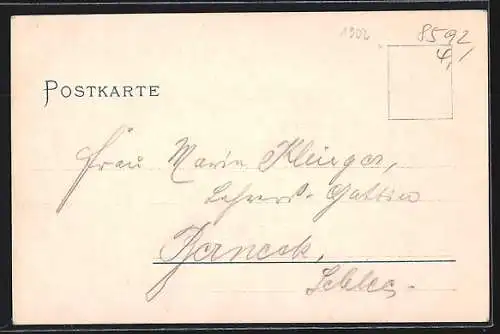 1902
8592
4,/
POSTKARTE
Frau Marie Klinger,
Lehrers-Gattin
Berneck,